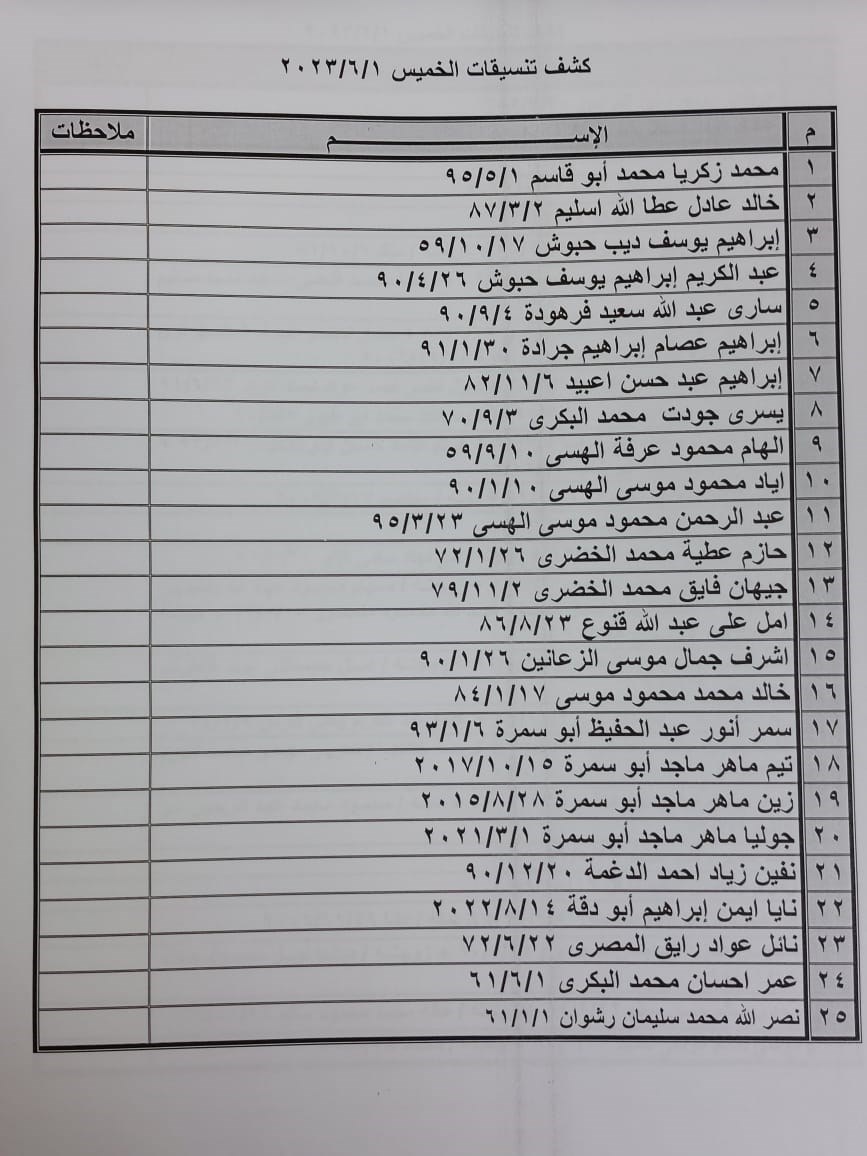 كشف تنسيقات الخميس ٢٠٢٣/٦/١
م الإســـــــــم ملاحظات
١ محمد زكريا محمد أبو قاسم ٩٥/٥/١
٢ خالد عادل عطا الله اسليم ٨٧/٣/٢
٣ إبراهيم يوسف ديب حبوش ٥٩/١٠/١٧
٤ عبد الكريم إبراهيم يوسف حبوش ٩٠/٤/٢٦
٥ سارى عبد الله سعيد فرهودة ٩٠/٩/٤
٦ إبراهيم عصام إبراهيم جرادة ٩١/١/٣٠
٧ إبراهيم عبد حسن اعبيد ٨٢/١١/٦
٨ يسرى جودت محمد البكرى ٧٠/٩/٣
٩ الهام محمود عرفة الهسى ٥٩/٩/١٠
١٠ اياد محمود موسى الهسى ٩٠/١/١٠
١١ عبد الرحمن محمود موسى الهسى ٩٥/٣/٢٣
١٢ حازم عطية محمد الخضرى ٧٢/١/٢٦
١٣ جيهان فايق محمد الخضرى ٧٩/١١/٢
١٤ امل على عبد الله قنوع ٨٦/٨/٢٣
١٥ اشرف جمال موسى الزعانين ٩٠/١/٢٦
١٦ خالد محمد محمود موسى ٨٤/١/١٧
١٧ سمر أنور عبد الحفيظ أبو سمرة ٩٣/١/٦
١٨ تيم ماهر ماجد أبو سمرة ٢٠١٧/١٠/١٥
١٩ زين ماهر ماجد أبو سمرة ٢٠١٥/٨/٢٨
٢٠ جوليا ماهر ماجد أبو سمرة ٢٠٢١/٣/١
٢١ نفين زياد احمد الدغمة ٩٠/١٢/٢٠
٢٢ نايا ايمن إبراهيم أبو دقة ٢٠٢٢/٨/١٤
٢٣ نائل عواد رايق المصرى ٧٢/٦/٢٢
٢٤ عمر احسان محمد البكرى ٦١/٦/١
٢٥ نصر الله محمد سليمان رشوان ٦١/١/١